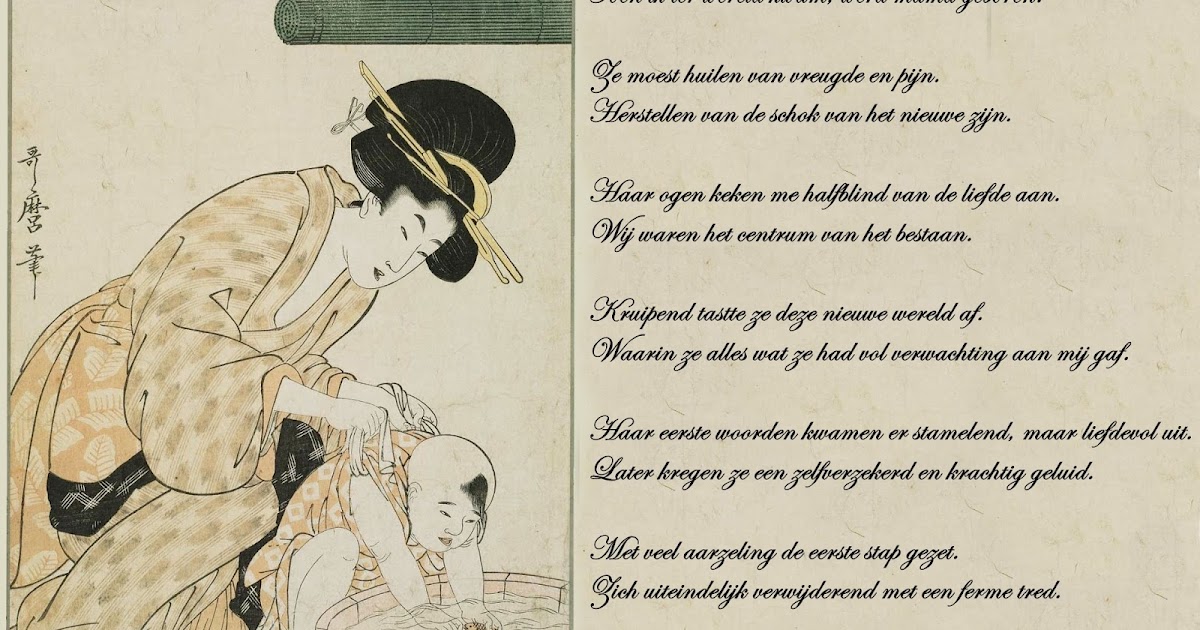 哥麿筆
Ze moest huilen van vreugde en pijn.
Herstellen van de schok van het nieuwe zijn.
Haar ogen keken me halfblind van de liefde aan.
Wij waren het centrum van het bestaan.
Kruipend tastte ze deze nieuwe wereld af.
Waarin ze alles wat ze had vol verwachting aan mij gaf.
Haar eerste woorden kwamen er stamelend, maar liefdevol uit.
Later kregen ze een zelfverzekerd en krachtig geluid.
Met veel aarzeling de eerste stap gezet.
Zich uiteindelijk verwijderend met een ferme tred.